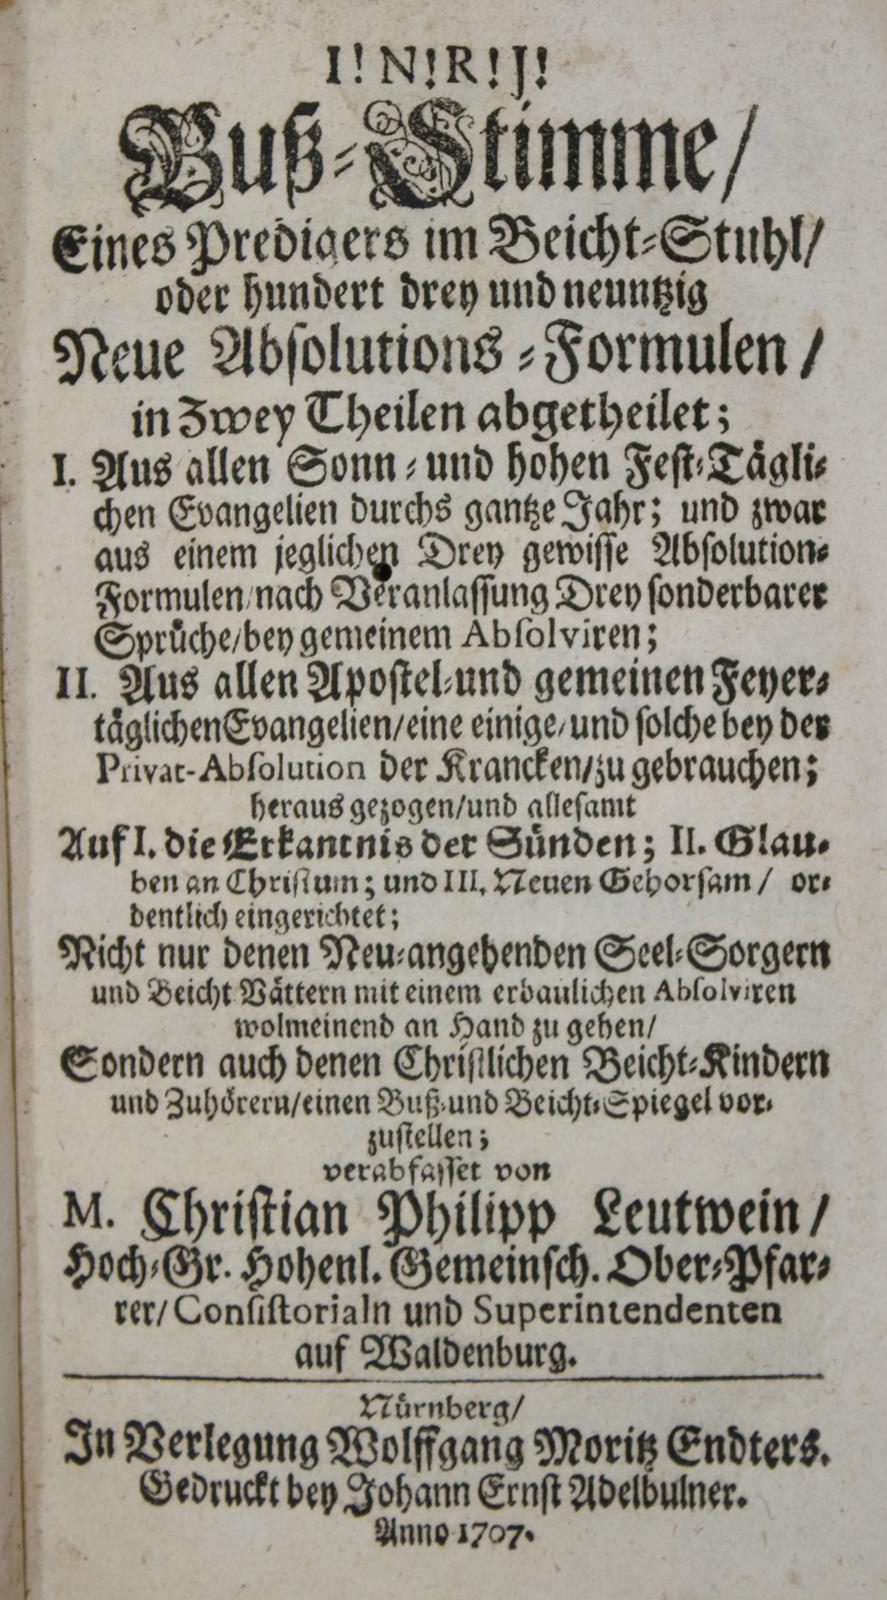 I! N! R! J!
Buß-Stimme/
Eines Predigers im Beicht-Stuhl/
oder hundert drey und neuntzig
Neue Absolutions-Formulen/
in Zwey Theilen abgetheilet;
I. Aus allen Sonn- und hohen Fest-Tägli-
chen Evangelien durchs gantze Jahr; und zwar
aus einem jeglichen Drey gewisse Absolution-
Formulen/nach Veranlassung Drey sonderbarer
Sprüche/bey gemeinem Absolviren;
II. Aus allen Apostel-und gemeinen Feyer-
täglichen Evangelien/eine einige/und solche bey der
Privat-Absolution der Krancken/zu gebrauchen;
heraus gezogen/und allesamt
Auf I. die Erkantnis der Sünden; II. Glau-
ben an Christum; und III. Neuen Gehorsam/ or-
dentlich eingerichtet;
Nicht nur denen Neu-angehenden Seel-Sorgern
und Beicht Vättern mit einem erbaulichen Absolviren
wolmeinend an Hand zu gehen/
Sondern auch denen Christlichen Beicht-Kindern
und Zuhörern/einen Buß-und Beicht-Spiegel vor-
zustellen;
verabfasset von
M. Christian Philipp Leutwein/
Hoch-Gr. Hohenl. Gemeinsch. Ober-Pfar-
rer/Consistorialn und Superintendenten
auf Waldenburg.
Nürnberg/
In Verlegung Wolffgang Moritz Endters.
Gedruckt bey Johann Ernst Adelbulner.
Anno 1707.